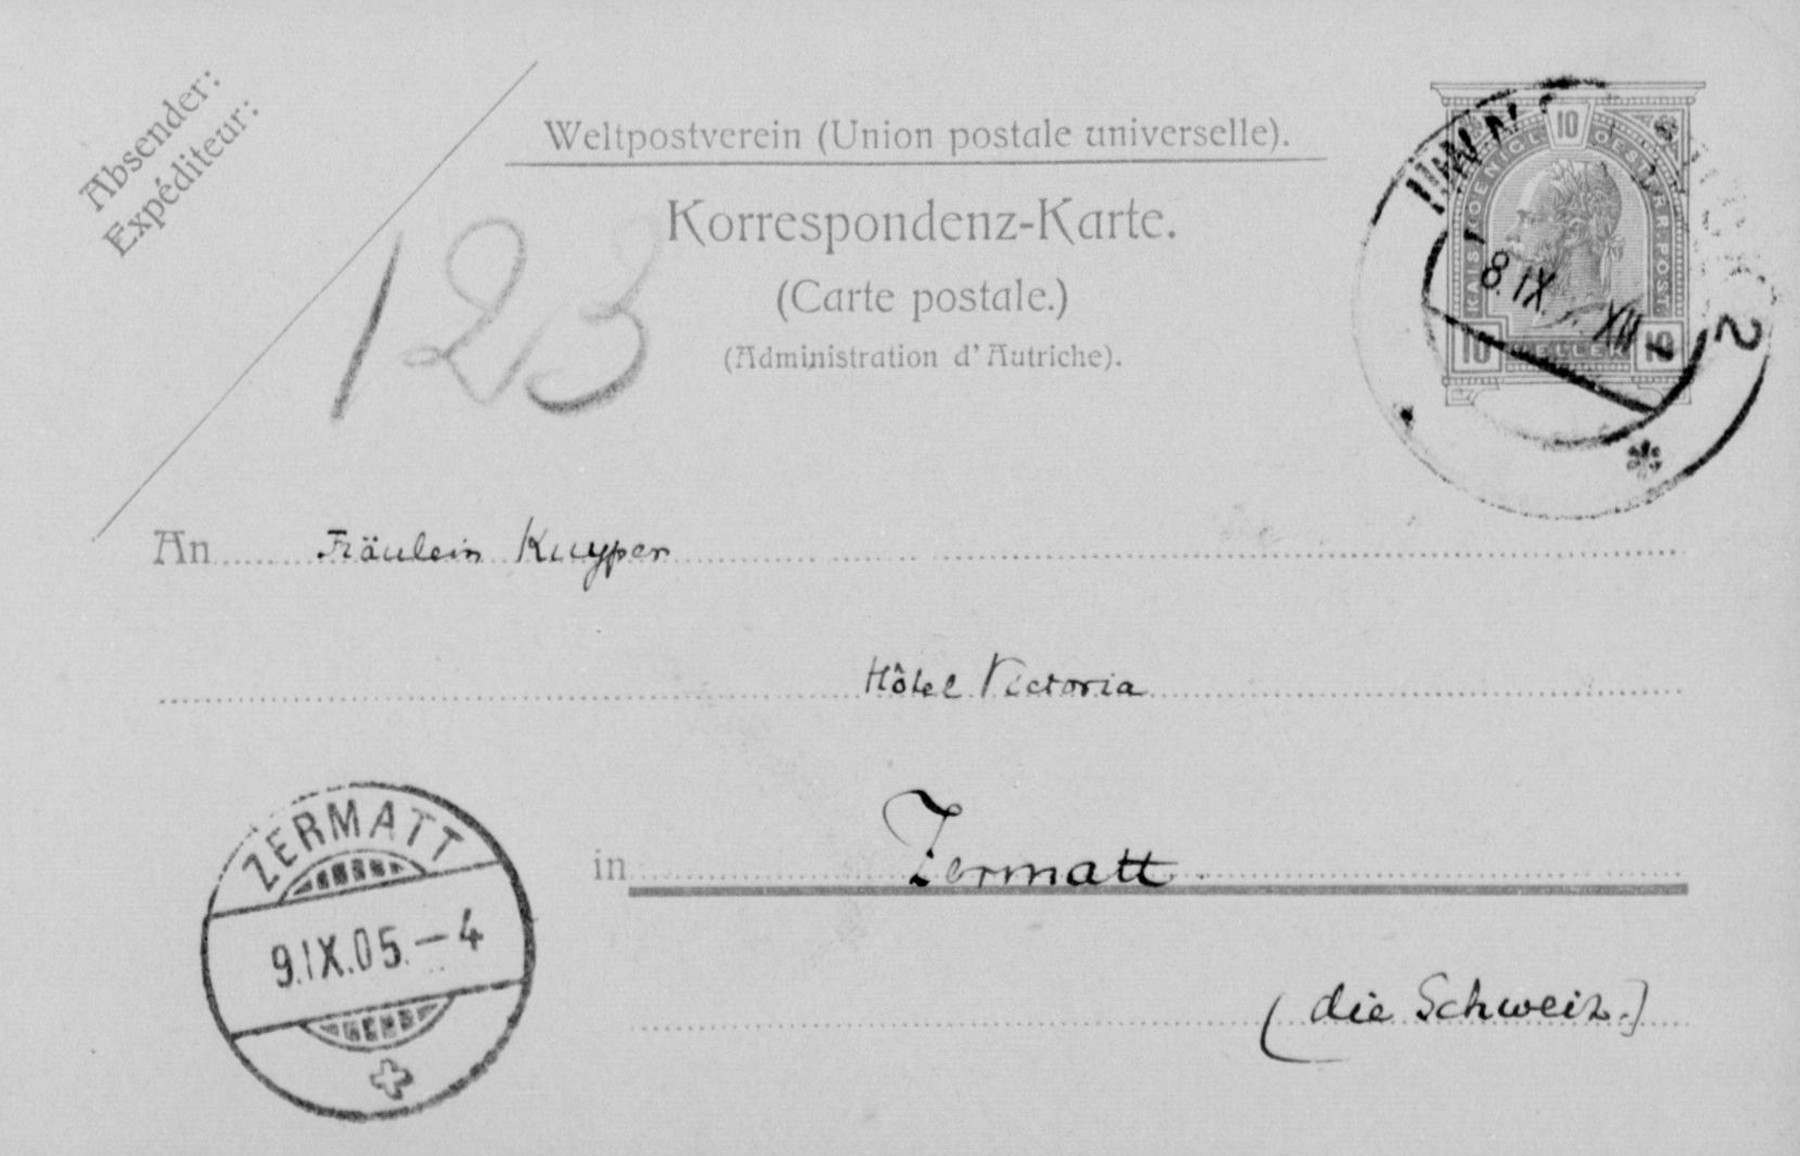 Absender:
Expéditeur:
Weltpostverein (Union postale universelle).
Korrespondenz-Karte.
(Carte postale.)
(Administration d'Autriche).
123
10
KAIS. KOENIGL. OESTERR. POST
10 HELLER 10
8.IX. XII
2
An Fräulein Kuyper
Hôtel Victoria
in Zermatt
(die Schweiz.)
ZERMATT
9.IX.05.-4